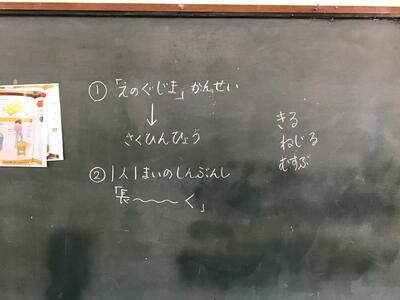 ①「えのぐじま」かんせい
↓
さくひんひょう
②1人1まいのしんぶんし
「長〜〜〜く」
きる
ねじる
むすぶ